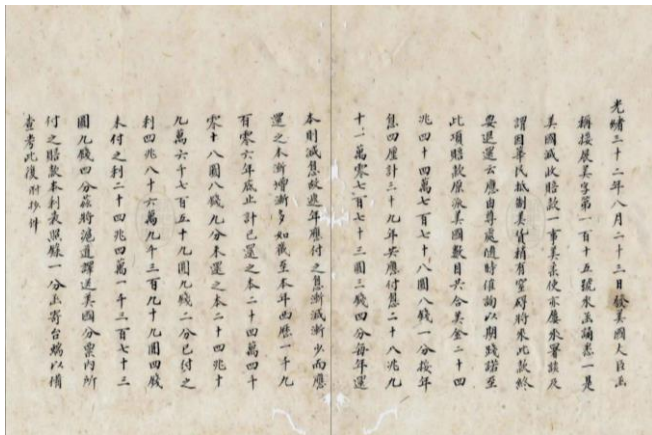 光緒三十二年八月二十三日發美國大臣函
稱接展美字第一百十五號來函誦悉一是
美國減收賠款一事美柔使亦屢來署談及
謂因華民抵制美貨稍有窒碍將來此款終
要退還云應由尊處隨時催詢以期踐諾至
此項賠款原派美國數目共合美金二十四
兆四十四萬七百七十八圓八錢一分按年
息四厘計三十九年共應付息二十八兆九
十一萬零七百七十三圓三錢四分每年還
本則減息故逐年應付之息漸減漸少而應
還之本漸增漸多如截至本年西歷一千九
百零六年底止計已還之本二十四萬四千
零十八圓八錢九分未還之本二十四兆十
九萬六千七百五十九圓九錢二分已付之
利四兆八十六萬九千三百九十九圓四錢
未付之利二十四兆四萬一千三百七十三
圓九錢四分茲將滬道譯送美國分票內所
付之賠款本利表照錄一分函寄台端以備
查考此復 附抄件